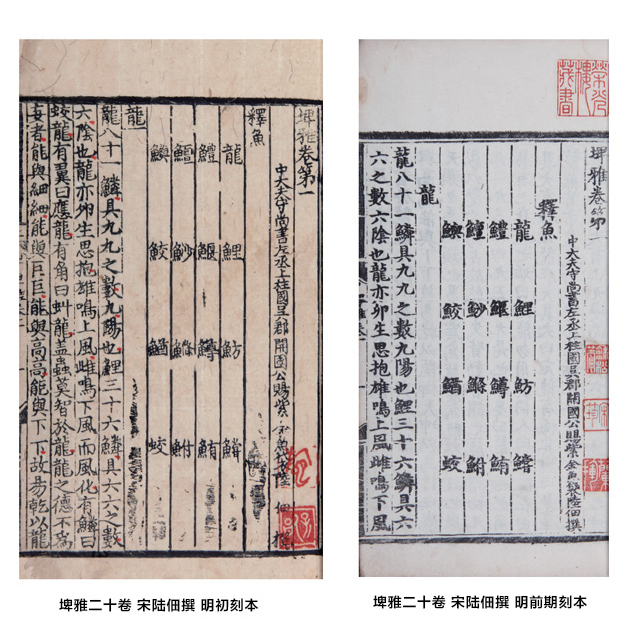 埤雅卷第一
中大夫守尚書左丞上柱國吳郡開國公賜紫金魚袋陸佃撰
釋魚
龍 鯉 魴
鱧 鰋 鱒 鮪
鱣 鯋 鰷 鮒
鮫 鰌 蛟
龍
龍八十一鱗具九九之數九陽也鯉三十六鱗具六六之數
六陰也龍亦卵生思抱雄鳴上風雌鳴下風而風化有鱗曰
蛟龍有翼曰應龍有角曰虬龍蓋蟲莫智於龍龍之德不為
妄者能與細細能與巨巨能與高高能與下下故易乾以龍
埤雅二十卷 宋陆佃撰 明初刻本
埤雅卷第一
中大夫守尚書左丞上柱國吳郡開國公賜紫金魚袋陸佃撰
釋魚
龍 鯉 魴
鱧 鰋 鱒 鮪
鱣 鯋 鰷 鮒
鮫 鰌 蛟
龍
龍八十一鱗具九九之數九陽也鯉三十六鱗具六
六之數六陰也龍亦卵生思抱雄鳴上風雌鳴下風
埤雅二十卷 宋陆佃撰 明前期刻本